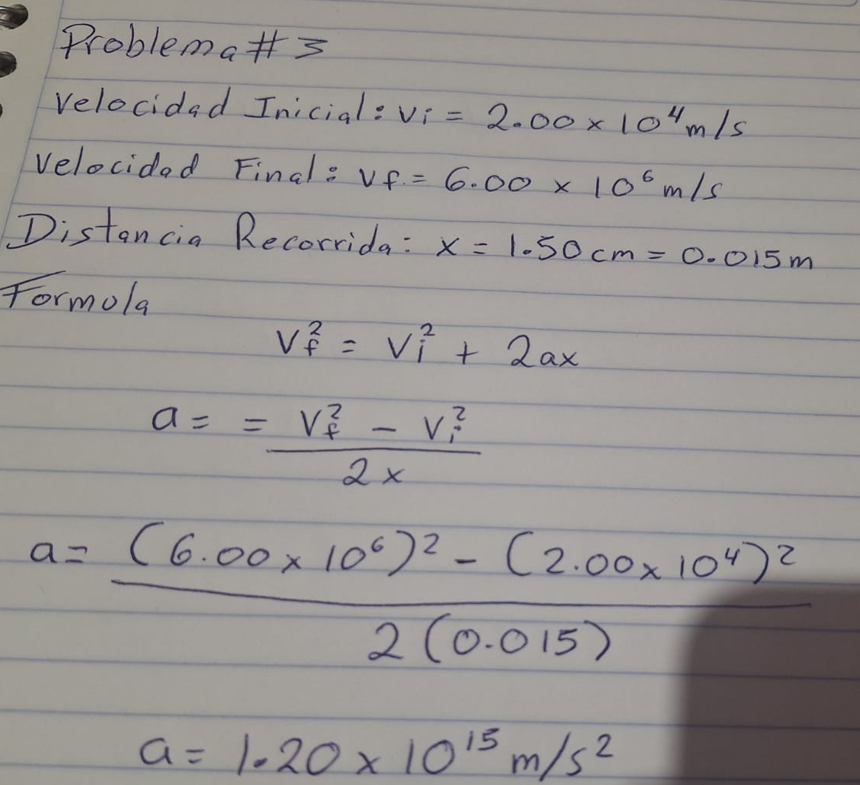 Problema # 3
Velocidad Inicial: vi = 2.00 x 10⁴ m/s
Velocidad Final: vf = 6.00 x 10⁶ m/s
Distancia Recorrida: x = 1.50 cm = 0.015 m
Formula
Vf² = Vi² + 2ax
a = = Vf² - Vi²
2x
a = (6.00 x 10⁶)² - (2.00 x 10⁴)²
2 (0.015)
a = 1.20 x 10¹⁵ m/s²